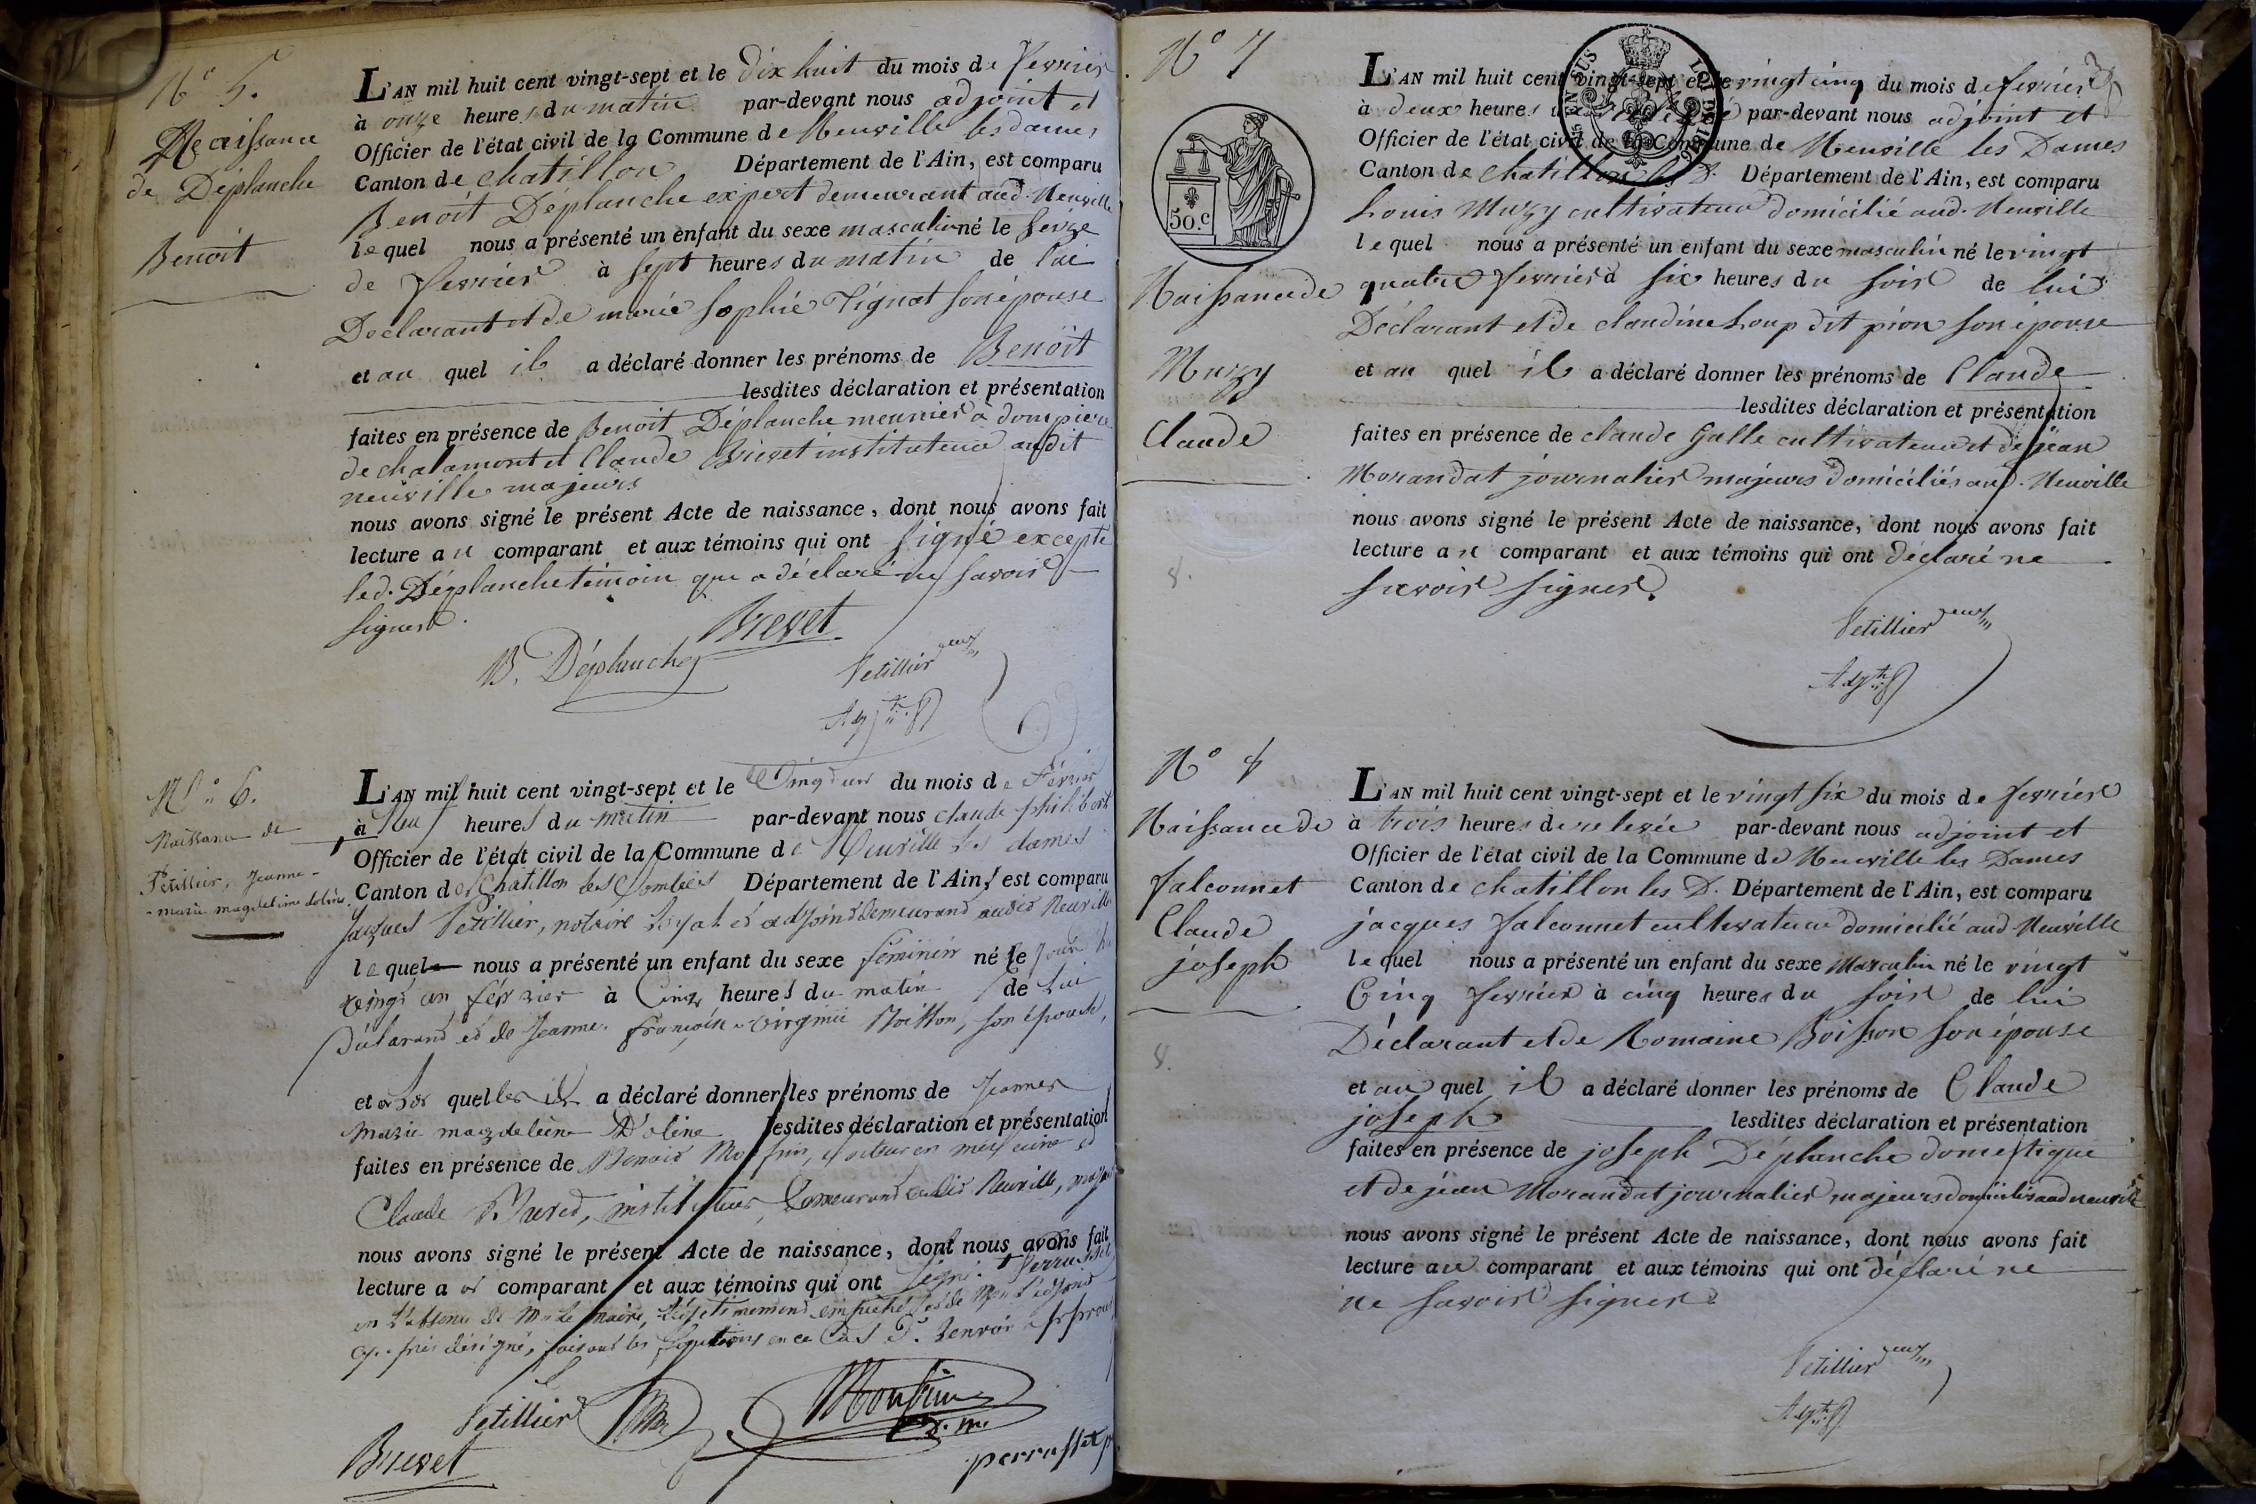 N° 5.
Naissance
de Déplanche
Benoit
L'AN mil huit cent vingt-sept et le dix huit du mois de fevrier
à onze heures du matin par-devant nous adjoint et
Officier de l'état civil de la Commune de Neuville les dames
Canton de chatillon Département de l'Ain, est comparu
Benoit Déplanche expert demeurant aud. Neuville
lequel nous a présenté un enfant du sexe masculin né le seize
de fevrier à sept heures du matin de lui
Déclarant et de marie sophie Tignat son épouse
et au quel il a déclaré donner les prénoms de Benoit
lesdites déclaration et présentation
faites en présence de Benoit Déplanche meunier à dompierre
de chalamont et Claude Brevet instituteur audit
neuville majeurs
nous avons signé le présent Acte de naissance, dont nous avons fait
lecture au comparant et aux témoins qui ont signé excepté
led. Déplanche témoin qui a déclaré ne savoir
signer.
Brevet
B. Déplanche
Petillier
Adjt
N° 6.
Naissance de
Petillier, Jeanne-
-marie magdeleine doline.
L'AN mil huit cent vingt-sept et le vingt un du mois de Février
à neuf heures du matin par-devant nous claude philibert
Officier de l'état civil de la Commune de Neuville les dames
Canton de Chatillon les Dombes Département de l'Ain, est comparu
Jacques Petillier, notaire royal et adjoint demeurant audit Neuville
lequel nous a présenté un enfant du sexe féminin né le jour
vingt un février à Cinq heures du matin de lui
Déclarant et de Jeanne françoise virginie son épouse,
et quelles il a déclaré donner les prénoms de Jeanne
marie magdeleine Doline lesdites déclaration et présentation
faites en présence de Benoit docteur en medecine et
Claude Brevet, instituteur, demeurant audit Neuville, majeurs
nous avons signé le présent Acte de naissance, dont nous avons fait
lecture au comparant et aux témoins qui ont signé.
en l'absence de Mr le maire, légitimement empêché et de Mr l'adjoint
désigné, faisant les fonctions en ce cas
Petillier
Brevet
D. m.
N° 7
50.c
Naissance de
Muzy
Claude
L'AN mil huit cent vingt-sept et le vingt cinq du mois de fevrier
à deux heures par-devant nous adjoint et
Officier de l'état civil de la Commune de Neuville les Dames
Canton de chatillon les D. Département de l'Ain, est comparu
Louis Muzy cultivateur domicilié aud. Neuville
lequel nous a présenté un enfant du sexe masculin né le vingt
quatre fevrier à six heures du soir de lui
Déclarant et de claudine Loup dit pion son épouse
et au quel il a déclaré donner les prénoms de Claude
lesdites déclaration et présentation
faites en présence de claude Galle cultivateur et de jean
Morandat journalier majeurs domiciliés aud. Neuville
nous avons signé le présent Acte de naissance, dont nous avons fait
lecture au comparant et aux témoins qui ont déclaré ne
savoir signer.
Petillier
Adjt
8.
N° 8
Naissance de
falconnet
Claude
joseph
L'AN mil huit cent vingt-sept et le vingt six du mois de fevrier
à trois heures de relevée par-devant nous adjoint et
Officier de l'état civil de la Commune de Neuville les Dames
Canton de chatillon les D. Département de l'Ain, est comparu
jacques falconnet cultivateur domicilié aud Neuville
lequel nous a présenté un enfant du sexe Masculin né le vingt
Cinq fevrier à cinq heures du soir de lui
Déclarant et de Romaine Boisson son épouse
et au quel il a déclaré donner les prénoms de Claude
joseph lesdites déclaration et présentation
faites en présence de joseph Déplanche domestique
et de jean Morandat journalier majeurs domiciliés aud neuville
nous avons signé le présent Acte de naissance, dont nous avons fait
lecture au comparant et aux témoins qui ont déclaré ne
ne savoir signer
Petillier
Adjt
8.